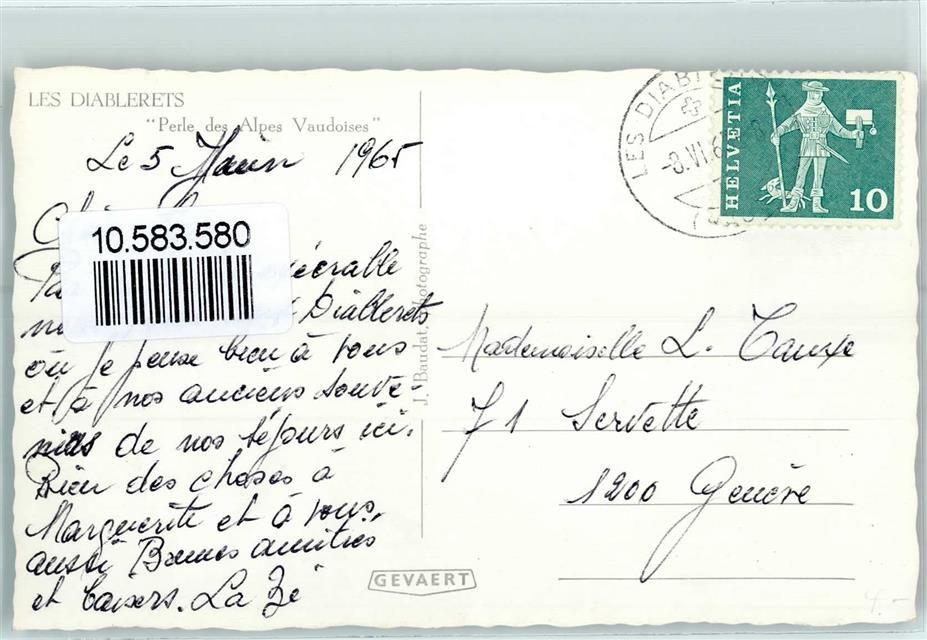 LES DIABLERETS
"Perle des Alpes Vaudoises"
Le 5 Juin 1965
10.583.580
Diablerets
où je pense bien à vous
et à nos anciens souve-
nirs de nos séjours ici.
Bien des choses à
Marguerite et à vous,
aussi Bonnes amitiés
et baisers. La Zé
J. Baudat, Photographe
GEVAERT
LES DIABLERETS
-8.VI.6
HELVETIA
10
Mademoiselle L.
71 Servette
1200 Genève
4.-